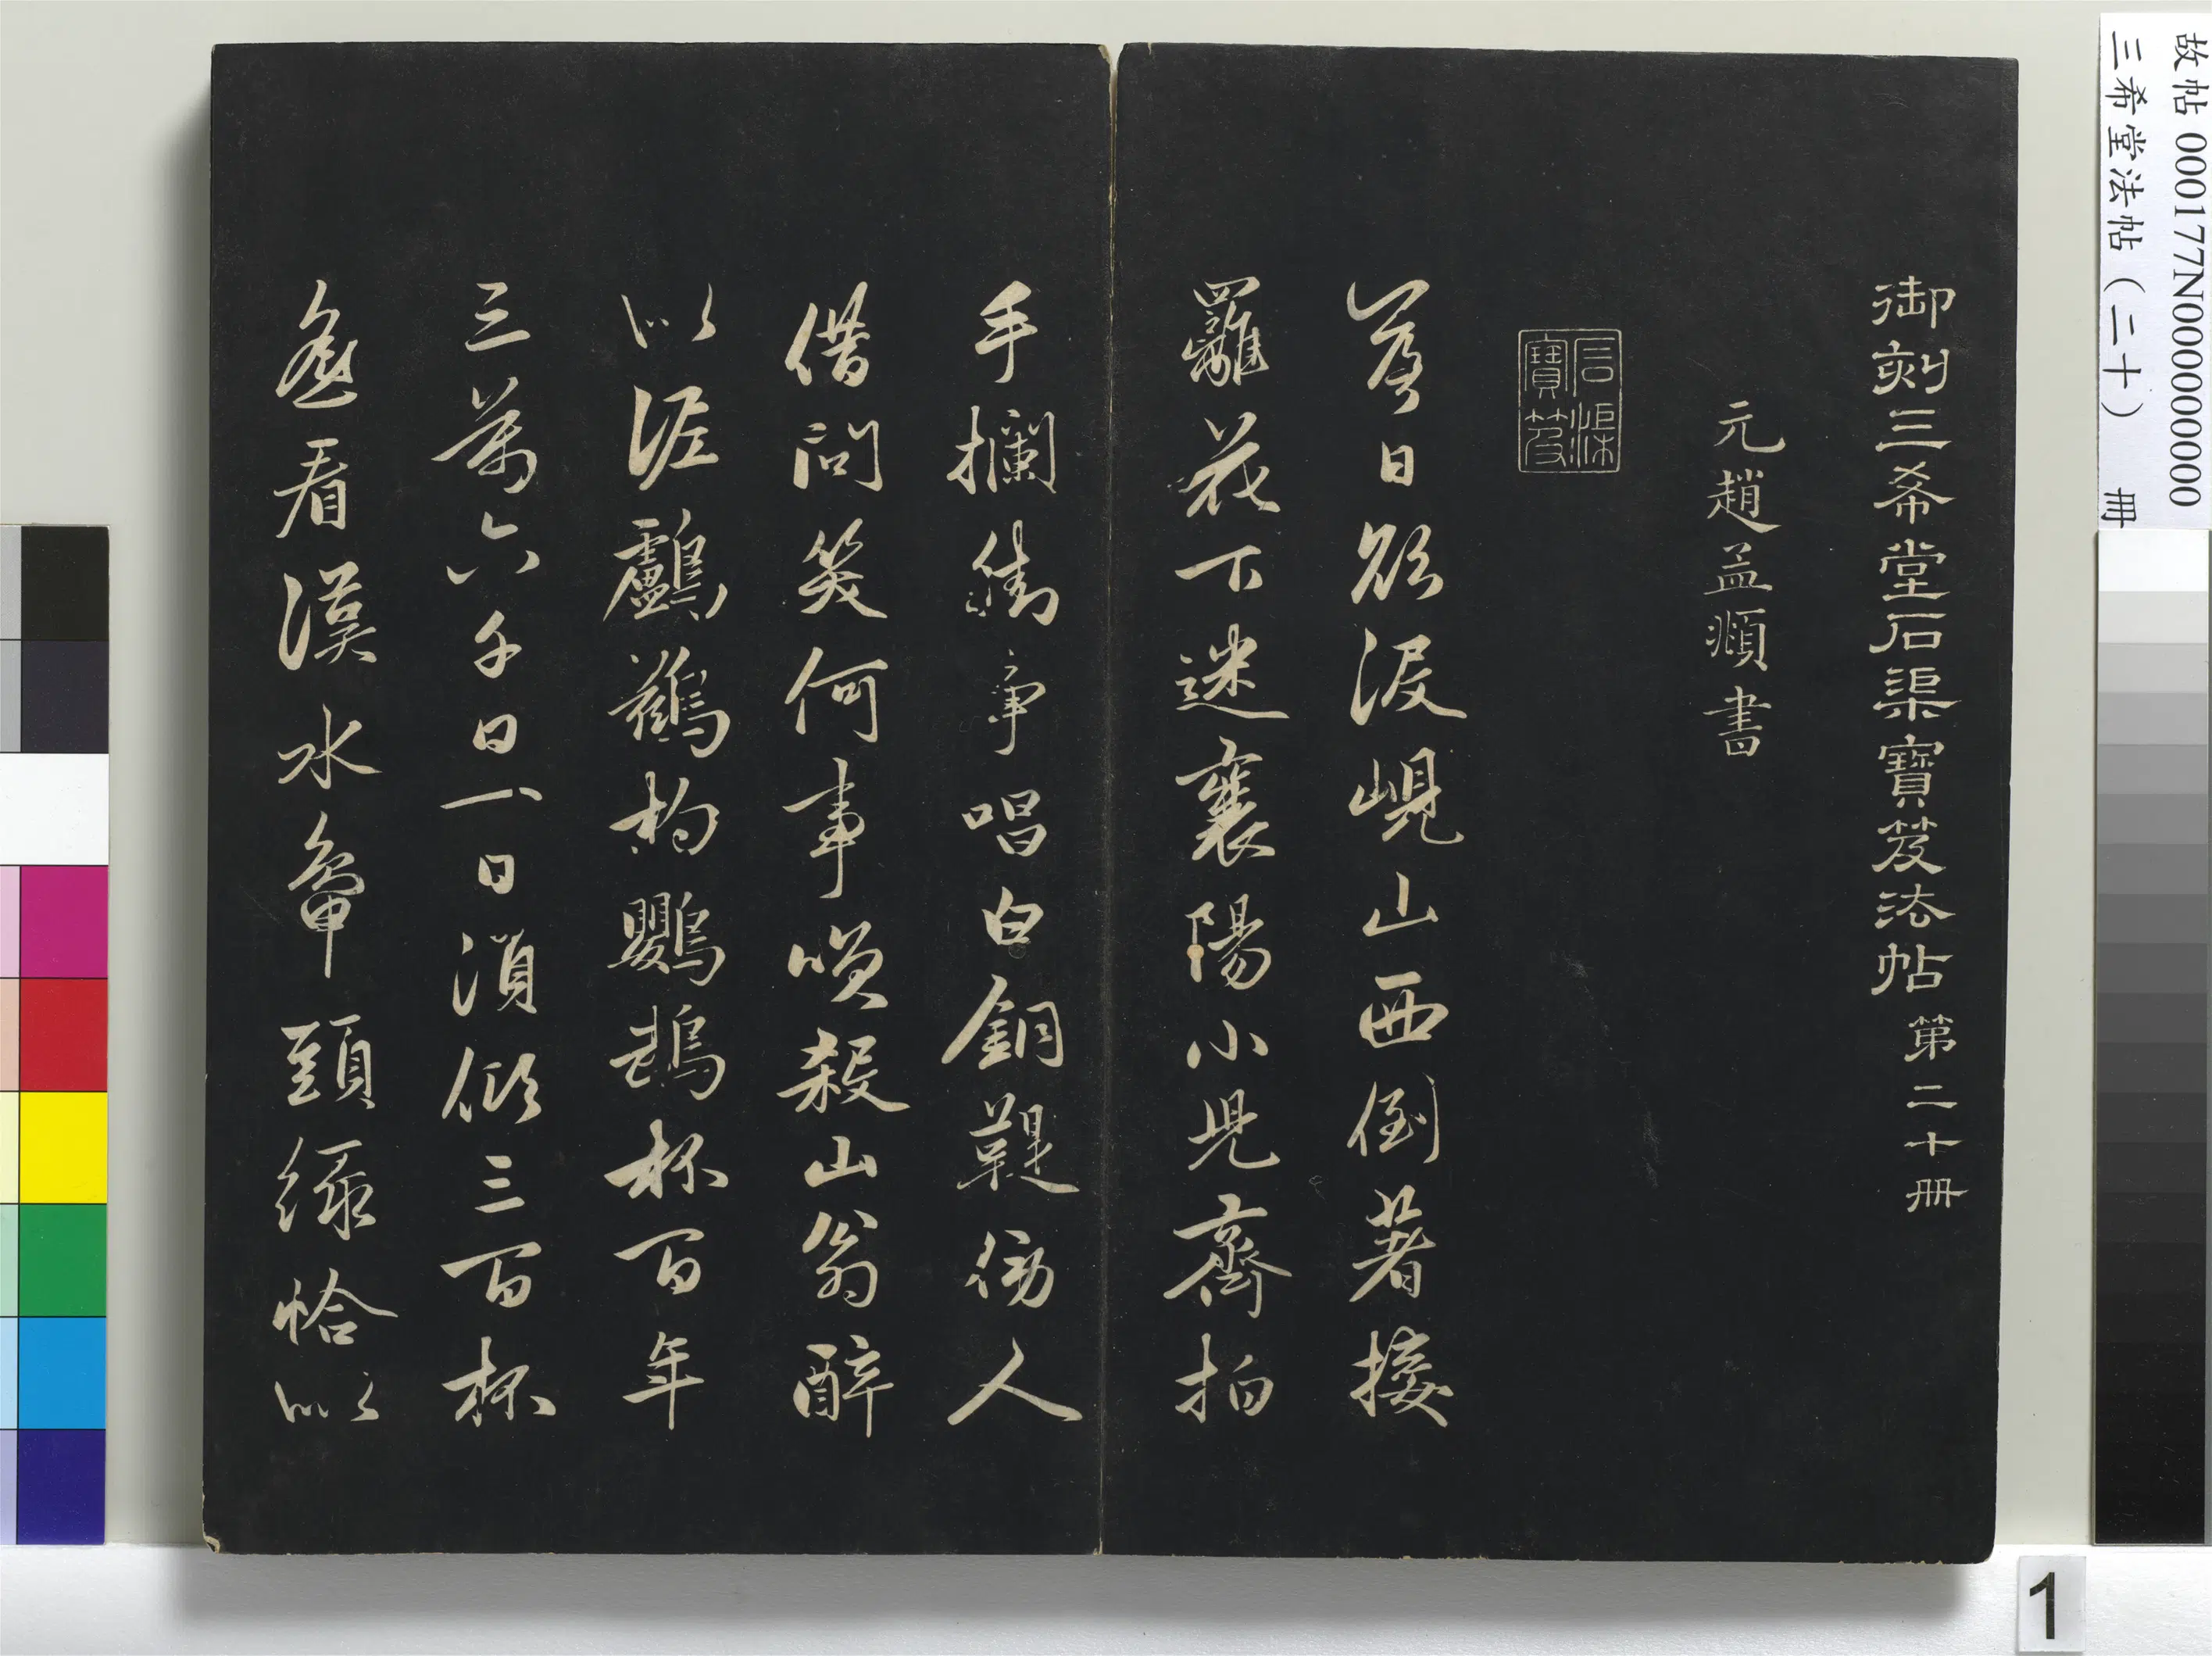 故帖 000177N000000000
三希堂法帖（二十） 冊
御刻三希堂石渠寶笈法帖 第二十冊
元趙孟頫書
石渠寶笈
落日欲沒峴山西倒著接
䍦花下迷襄陽小兒齊拍
手攔街爭唱白銅鞮傍人
借問笑何事笑殺山翁醉
似泥鸕鶿杓鸚鵡杯百年
三萬六千日一日須傾三百杯
遙看漢水鴨頭綠恰似
1